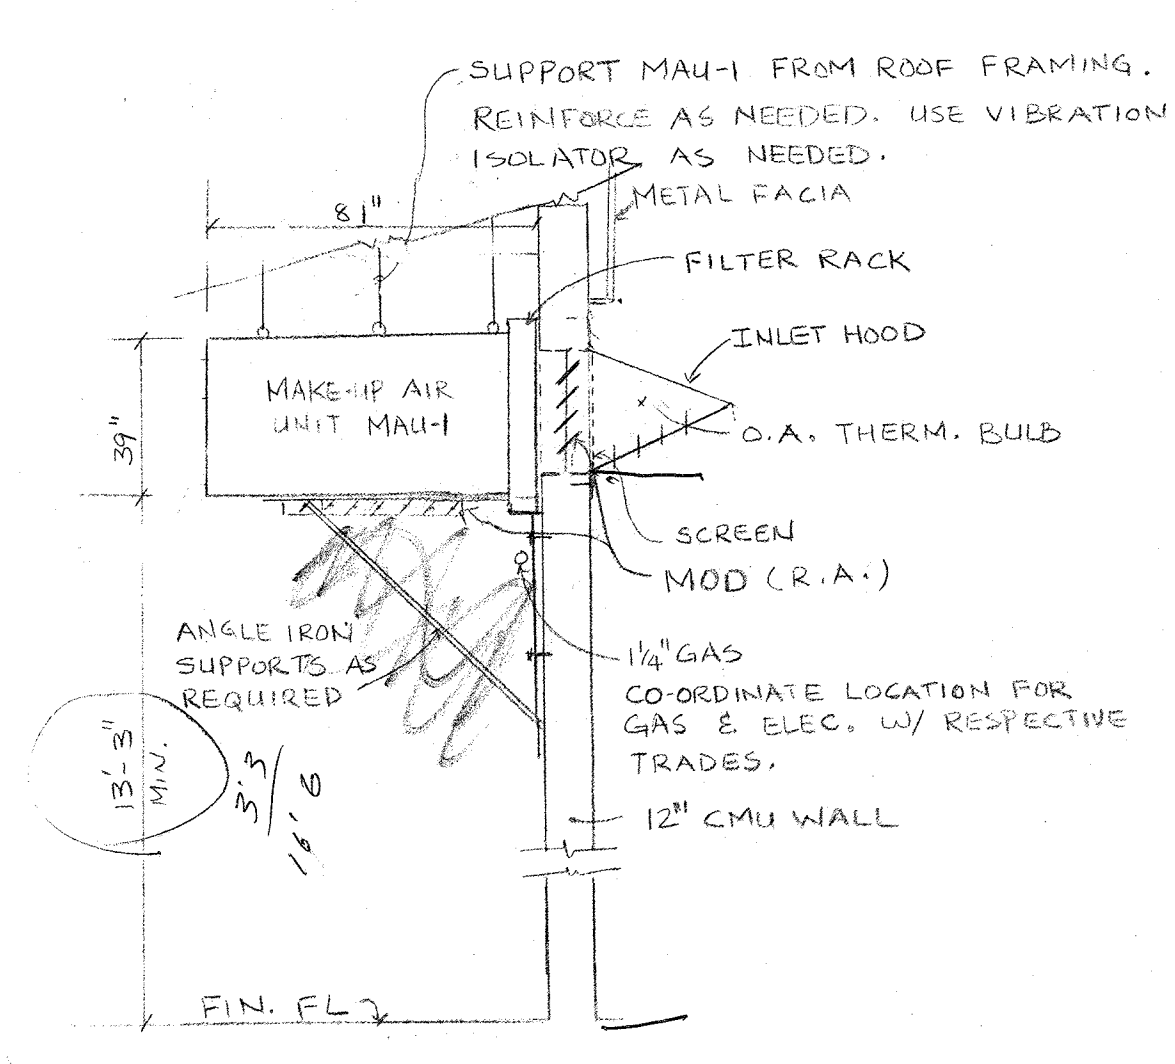 SUPPORT MAU-1 FROM ROOF FRAMING.
REINFORCE AS NEEDED. USE VIBRATION
ISOLATOR AS NEEDED.
METAL FACIA
81"
FILTER RACK
INLET HOOD
MAKE-UP AIR
UNIT MAU-1
39"
O.A. THERM. BULB
SCREEN
MOD (R.A.)
ANGLE IRON
SUPPORTS AS
REQUIRED
1¼" GAS
CO-ORDINATE LOCATION FOR
GAS & ELEC. W/ RESPECTIVE
TRADES.
13'-3"
MIN.
3'3
16'6
12" CMU WALL
FIN. FL